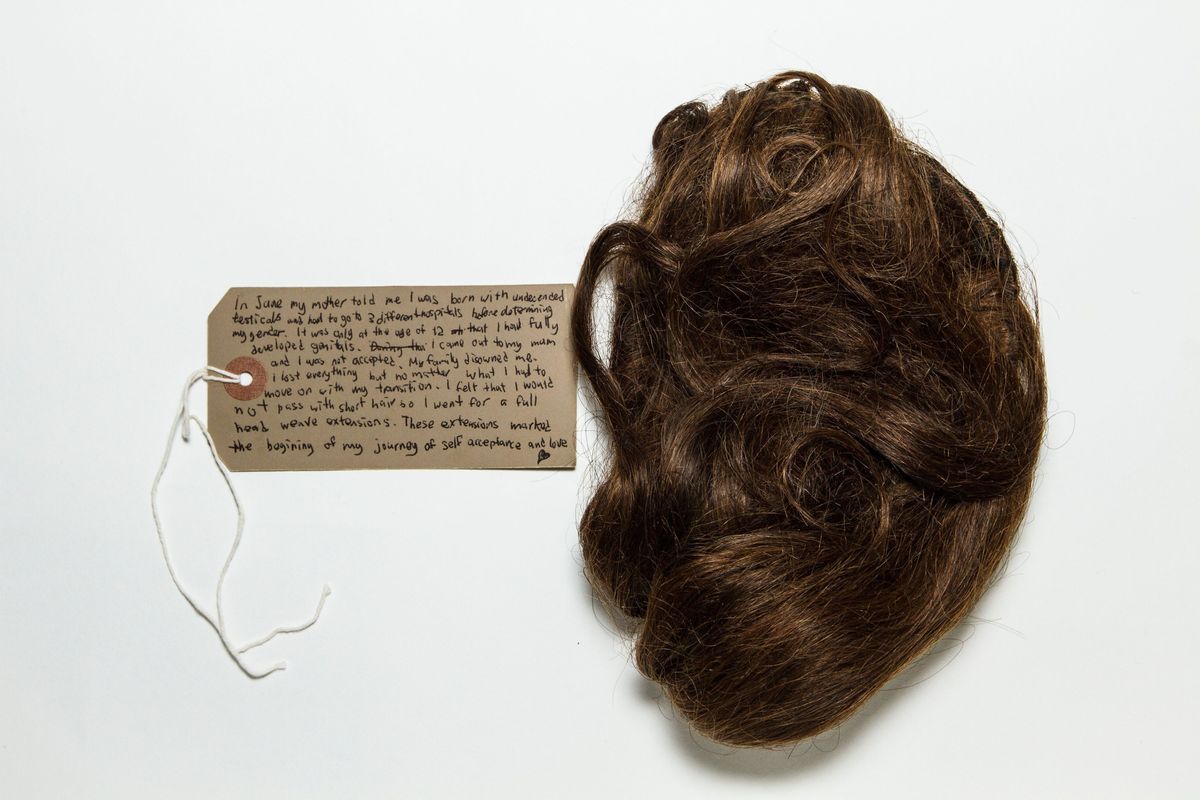 In June my mother told me I was born with undecended
testicals and had to go to 3 different hospitals before determining
my gender. It was only at the age of 12 that I had fully
developed genitals. I came out to my mum
and I was not accepted. My family disowned me.
i lost everything but no matter what I had to
move on with my transition. I felt that I would
not pass with short hair so I went for a full
head weave extensions. These extensions marked
the begining of my journey of self acceptance and love